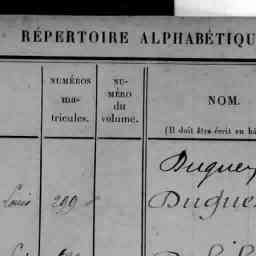 RÉPERTOIRE ALPHABÉTIQU
NUMÉROS
ma-
tricules.
NU-
MÉRO
du
volume.
NOM.
(Il doit être écrit en bâ
Duguey
Louis 299 Dugue